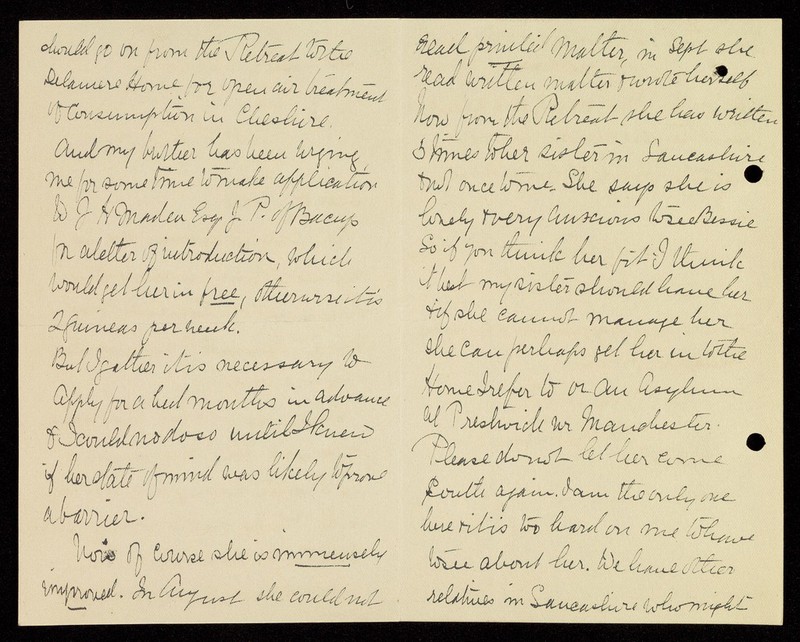 should go on from the Retreat to the
Delamere Home for open air treatment
of Consumption in Cheshire.
And my brother has been urging
me for some time to make application
to J H Maden Esq J. P. of Bacup
for a letter of introduction, which
would get her in free, otherwise it is
2 guineas per week.
But I gather it is necessary to
apply for a bed months in advance
& I could no do so until I knew
if her state of mind was likely to prove
a barrier.
Now of course she is immensely
improved. In August she could not
read printed matter, in Sept she
read written matter & wrote herself
Now from the Retreat she has written
3 times to her sister in Lancashire
& not once to me. She says she is
lonely & very anxious to see Bessie
So if you think her fit I think
it best my sister should have her
& if she cannot manage her
she can perhaps get her in to the
Home I refer to or an Asylum
at Prestwich nr Manchester.
Please do not let her come
South again. I am the only one
here & it is too hard on me to have
to see about her. We have other
relatives in Lancashire who might